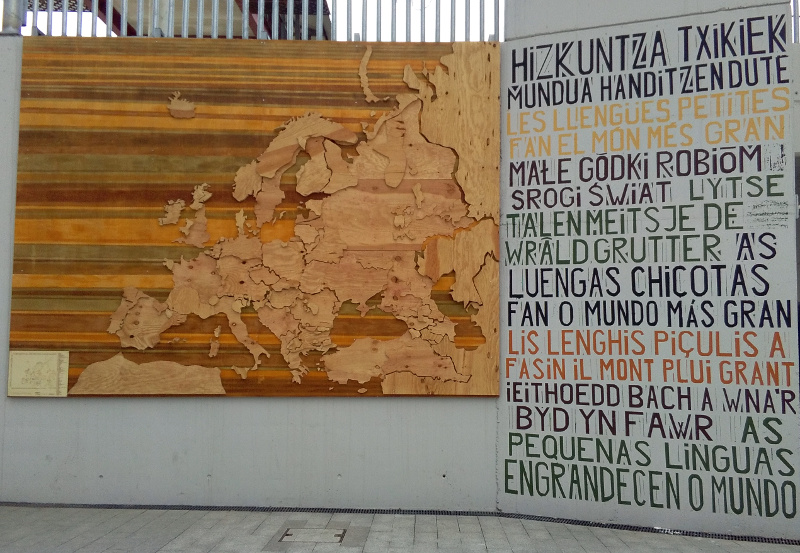 HiZKUNTZA TXIKIEK
MUNDUA HANDITZEN DUTE
LES LLENGÜES PETITES
FAN EL MÓN MÉS GRAN
MAŁE GŌDKI ROBIOM
SROGI ŚWIAT LYTSE
TALEN MEITSJE DE
WRÂLD GRUTTER AS
LUENGAS CHICOTAS
FAN O MUNDO MÁS GRAN
LIS LENGHIS PIÇULIS A
FASIN IL MONT PLUI GRANT
IEITHOEDD BACH A WNA'R
BYD YN FAWR AS
PEQUENAS LINGUAS
ENGRANDECEN O MUNDO